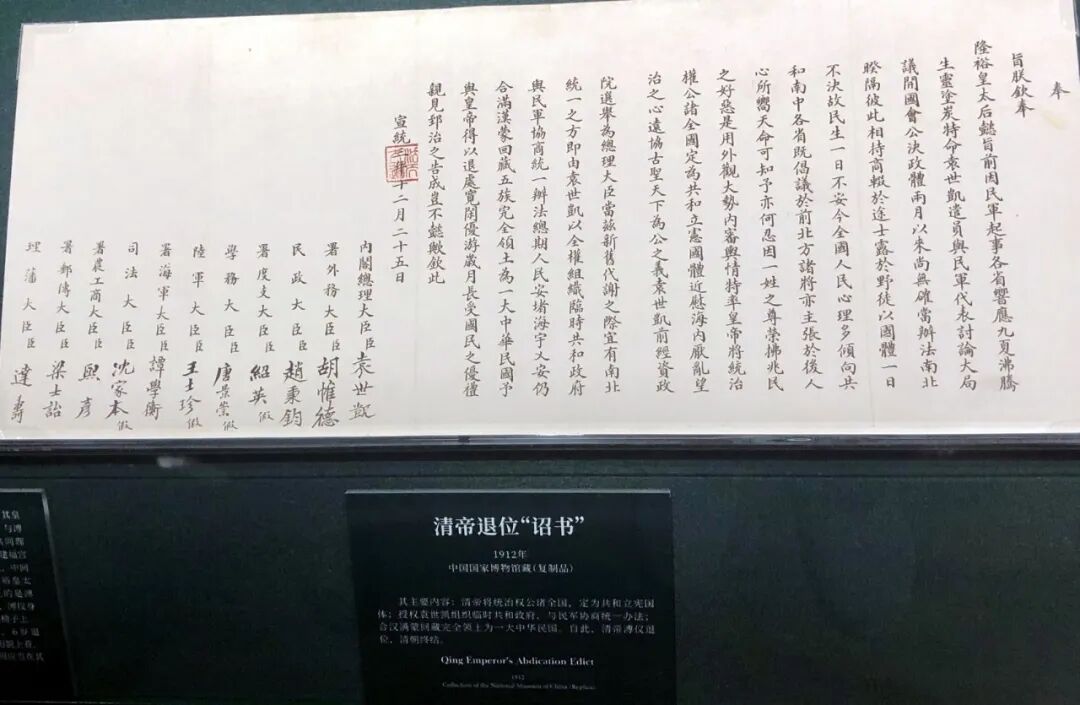 奉
旨朕欽奉
隆裕皇太后懿旨前因民軍起事各省響應九夏沸騰
生靈塗炭特命袁世凱遣員與民軍代表討論大局
議開國會公決政體兩月以來尚無確當辦法南北
暌隔彼此相持商輟於途士露於野徒以國體一日
不決故民生一日不安今全國人民心理多傾向共
和南中各省既倡議於前北方諸將亦主張於後人
心所嚮天命可知予亦何忍因一姓之尊榮拂兆民
之好惡是用外觀大勢內審輿情特率皇帝將統治
權公諸全國定為共和立憲國體近慰海內厭亂望
治之心遠協古聖天下為公之義袁世凱前經資政
院選舉為總理大臣當茲新舊代謝之際宜有南北
統一之方即由袁世凱以全權組織臨時共和政府
與民軍協商統一辦法總期人民安堵海宇乂安仍
合滿漢蒙回藏五族完全領土為一大中華民國予
與皇帝得以退處寬閑優游歲月長受國民之優禮
親見郅治之告成豈不懿歟欽此
宣統 年十二月二十五日
內閣總理大臣臣袁世凱
署外務大臣臣胡惟德
民政大臣臣趙秉鈞
署度支大臣臣紹英假
學務大臣臣唐景崇假
陸軍大臣臣王士珍假
署海軍大臣臣譚學衡
司法大臣臣沈家本假
署農工商大臣臣熙彥
署郵傳大臣臣梁士詒
理藩大臣臣達壽
清帝退位“诏书”
1912年
中国国家博物馆藏（复制品）
其主要内容：清帝将统治权公诸全国，定为共和立宪国
体；授权袁世凯组织临时共和政府，与民军协商统一办法；
合汉满蒙回藏完全领土为一大中华民国。自此，清帝溥仪退
位，清朝终结。
Qing Emperor's Abdication Edict
1912
Collection of the National Museum of China (Replica)